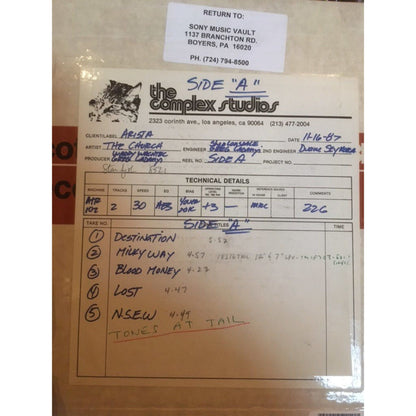 RETURN TO:
SONY MUSIC VAULT
1137 BRANCHTON RD.
BOYERS, PA 16020
PH. (724) 794-8500
SIDE "A"
the complex studios
2323 corinth ave., los angeles, ca 90064 (213) 477-2004
CLIENT/LABEL ARISTA DATE 11-16-87
ARTIST THE CHURCH ENGINEER GREG LADANYI 2ND ENGINEER DUANE SEYKORA
PRODUCER GREG LADANYI REEL NO. SIDE A PROJECT NO.
Starfish 8521
TECHNICAL DETAILS
MACHINE TRACKS SPEED EQ BIAS COMMENTS
ATR 102 2 30 AES +3 — MRC 226
TAKE NO. SIDE "A" TITLES TIME
1 DESTINATION 5-52
2 MILKY WAY 4-57
3 BLOOD MONEY 4-23
4 LOST 4-47
5 N.S.E.W 4-49
TONES AT TAIL